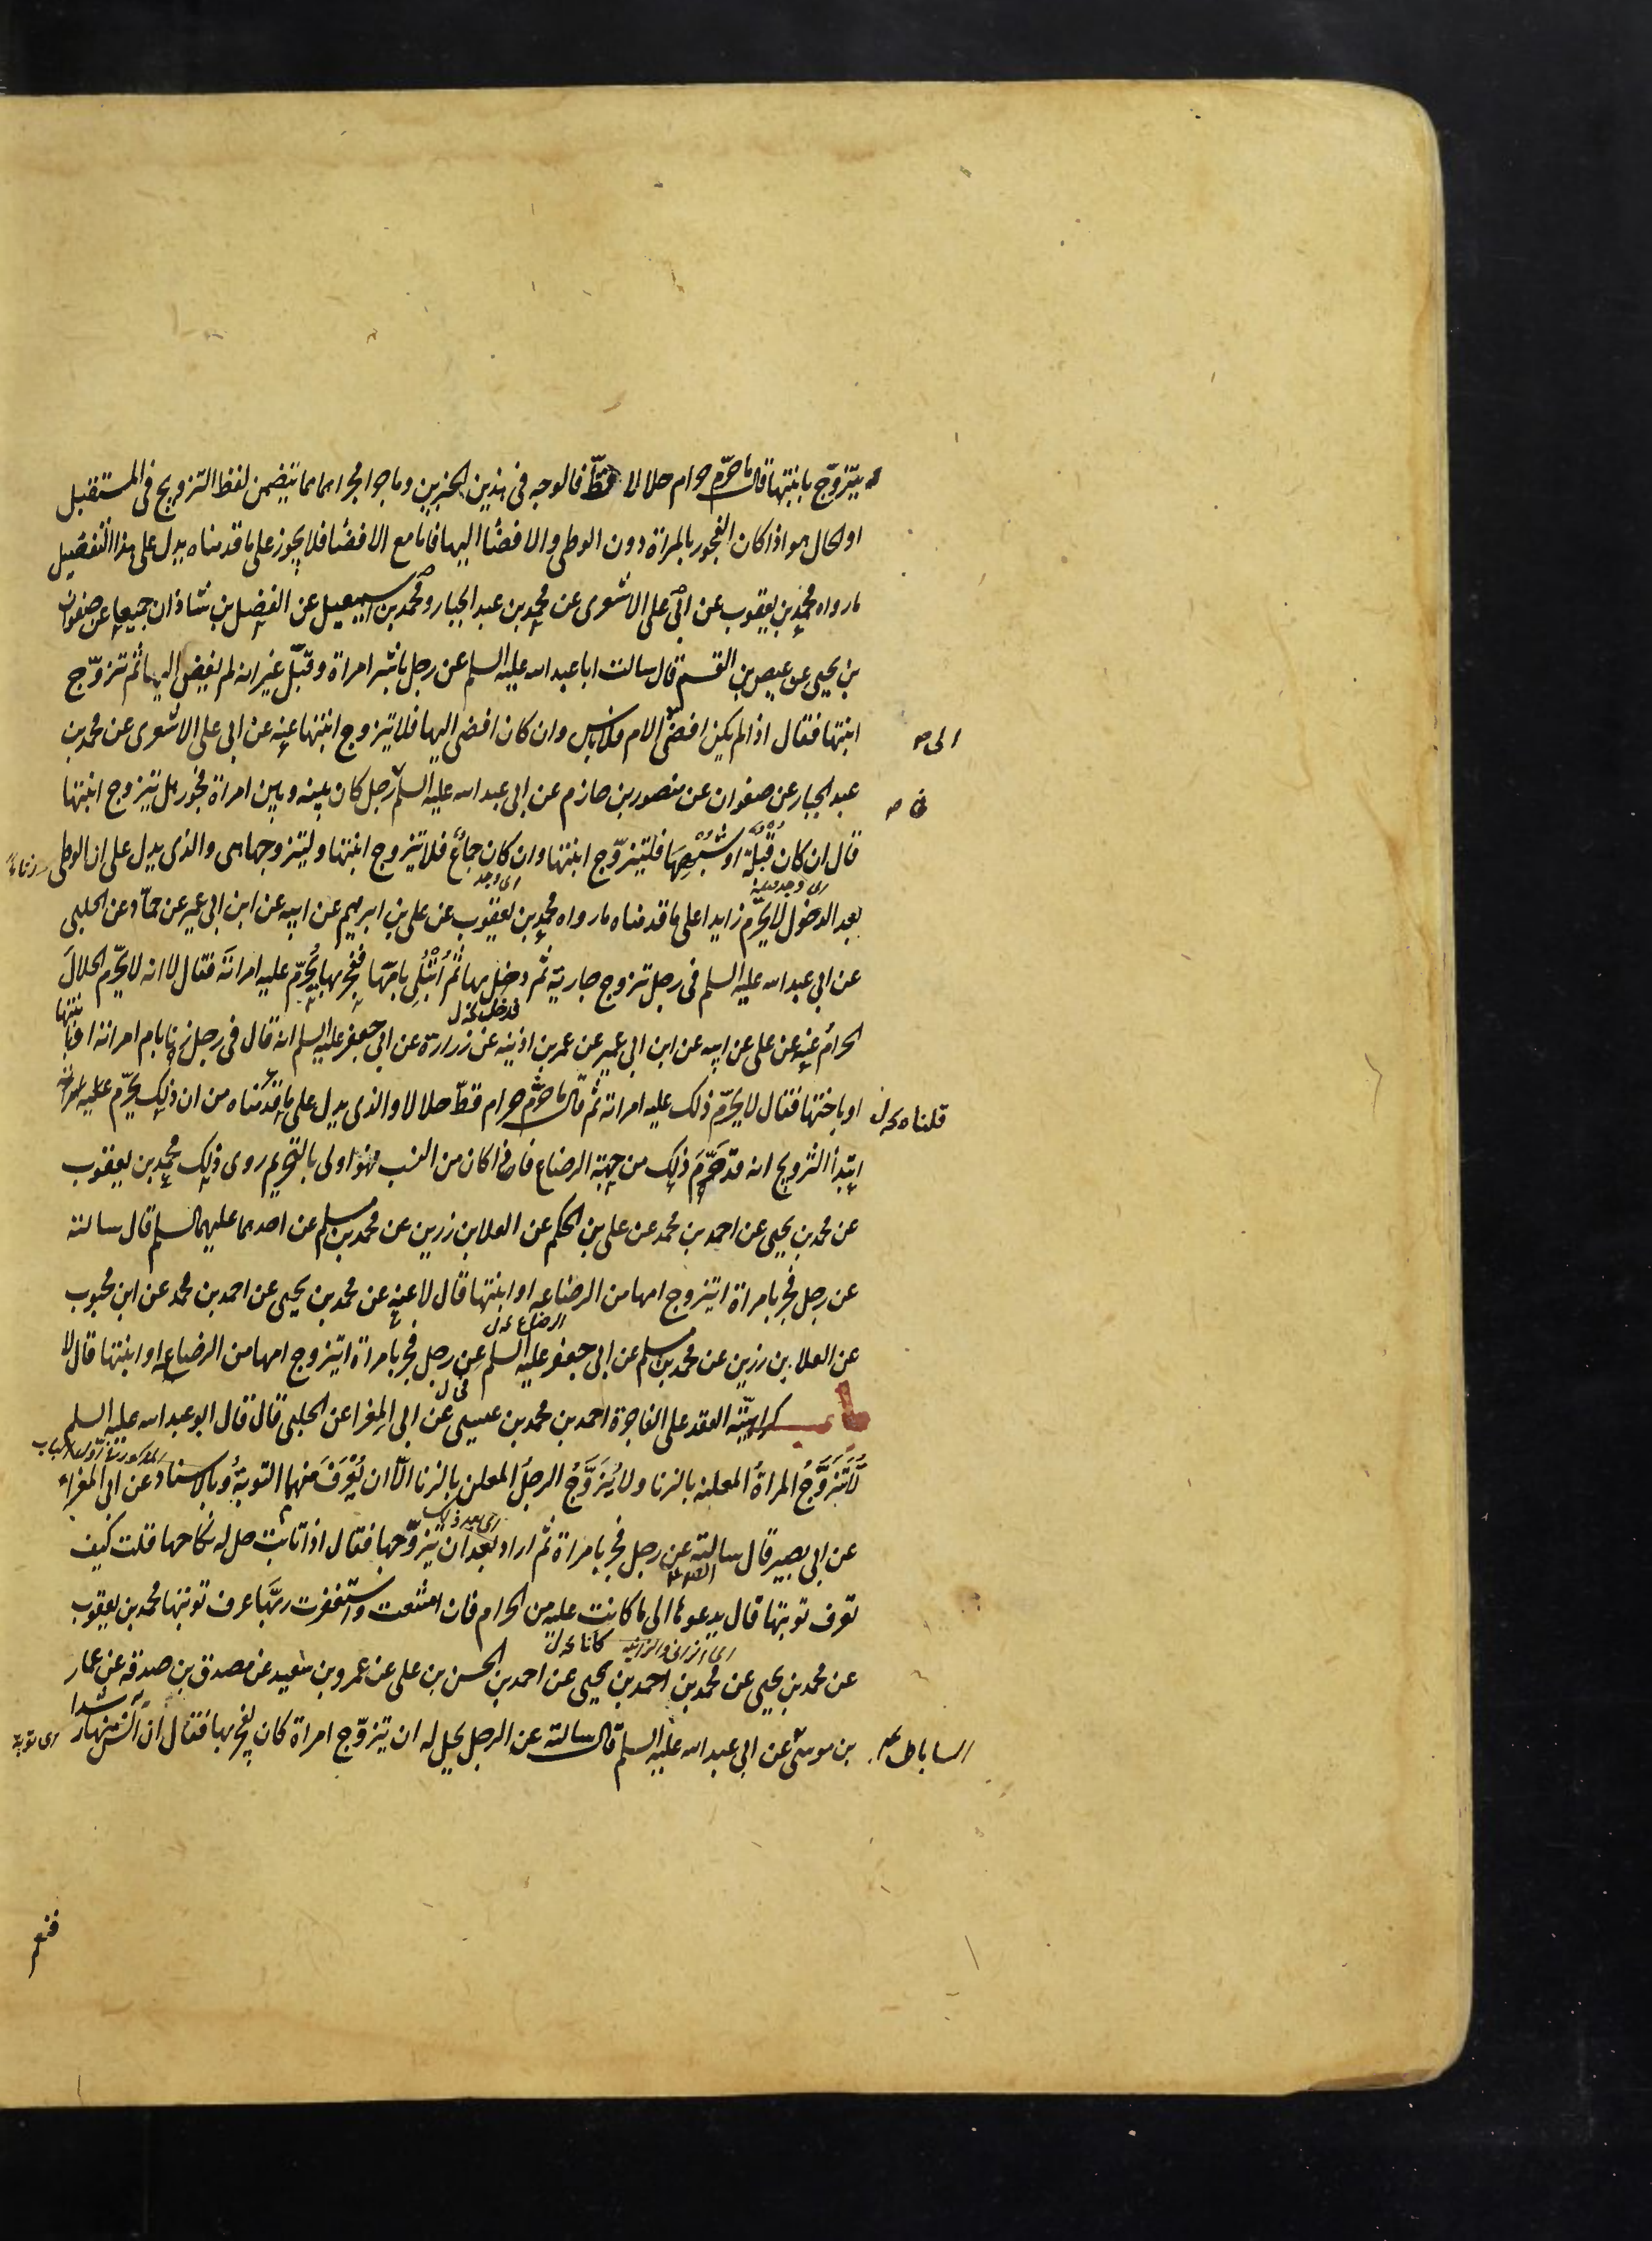 يتزوج بابنتها قال ما حرّم حرام حلالا قطّ فالوجه في هذين الخبرين وما جرا مجراهما مما يتضمن لفظ التزويج في المستقبل
او الحال هو اذا كان الفجور بالمراة دون الوطى والافضا اليها فاما مع الافضا فلا يجوز على ما قدمناه يدل على هذا التفصيل
ما رواه محمد بن يعقوب عن ابى على الاشعرى عن محمد بن عبد الجبار ومحمد بن اسمعيل عن الفضل بن شاذان جميعا عن صفوان
بن يحيى عن عيص بن القسم قال سالت ابا عبد الله عليه السلم عن رجل باشر امراة وقبّل غير انه لم يفض اليها ثم تزوّج
ابنتها فقال اذا لم يكن افضى الى الام فلا باس وان كان افضى اليها فلا يتزوج ابنتها عنه عن ابى على الاشعرى عن محمد بن
الى صح
عبد الجبار عن صفوان عن منصور بن حازم عن ابى عبد الله عليه السلم رجل كان بينه وبين امراة فجور هل يتزوج ابنتها
فى صح
قال ان كان قُبلة او شبهها فليتزوّج ابنتها وان كان جماع فلا تزوج ابنتها وليتزوجها هى والذى يدل على ان الوطى
اى وجد
بعد الدخول لا يحرّم زايدا على ما قدمناه ما رواه محمد بن يعقوب عن على بن ابرهيم عن ابيه عن ابن ابى عمير عن حمّاد عن الحلبى
عن ابى عبد الله عليه السلم فى رجل تزوج جارية ثم دخل بها ثم اُبتُلِى بامّها ففجر بها يُحرّم عليه امراتهَ فقال لا انه لا يحرّم الحلالَ
الحرامُ عنه عن على عن ابيه عن ابن ابى عمير عن عمر بن اذينه عن زرارة عن ابى جعفر عليه السلم انه قال فى رجل زنا بام امراته او بابنتها
او باختها فقال لا يحرّم ذلك عليه امراته ثم قال ما حرّم حرام قطّ حلالا والذى يدل على ما قدّمناه من ان ذلك يحرّم عليه امراته
قلناه
ابتدأ التزويج انه قد حَرَّمَ ذلك من جهة الرضاع فاذا كان من النسب فهو اولى بالتحريم روى ذلك محمد بن يعقوب
عن محمد بن يحيى عن احمد بن محمد عن على بن الحكم عن العلا بن رزين عن محمد بن مسلم عن احدهما عليهما السلم قال سالته
عن رجل فجر بامراة ايتزوج امها من الرضاعه او ابنتها قال لا عنه عن محمد بن يحيى عن احمد بن محمد عن ابن محبوب
الرضاع
عن العلا بن رزين عن محمد بن مسلم عن ابى جعفر عليه السلم عن رجل فجر بامراة ايتزوج امها من الرضاعه او ابنتها قال لا
باب كراهيّة العقد على الفاجرة احمد بن محمد بن عيسى عن ابى المغرا عن الحلبى قال قال ابو عبد الله عليه السلم
المذكورة فى اول الباب
لا تَتَزَوَّجُ المراةُ المعلنه بالزنا ولا يُزَوَّجُ الرجلُ المعلن بالزنا الّا ان يُعْرَفَ منهما التوبةُ وبالاسناد عن ابى المغراء
اى بعد ذلك
عن ابى بصير قال سالته عن رجل فجر بامراة ثم اراد بعد ان يتزوّجها فقال اذا تابت حل له نكاحها قلت كيف
تعرف توبتها قال يدعوها الى ما كانت عليه من الحرام فان امتنعت واستغفرت ربَّها عرف توبتها محمد بن يعقوب
اى الزانى والزانيه كانا
عن محمد بن يحيى عن محمد بن احمد بن يحيى عن احمد بن الحسن بن على عن عمرو بن سعيد عن مصدق بن صدقه عن عمار
بن موسى عن ابى عبد الله عليه السلم قال سالته عن الرجل يحل له ان يتزوّج امراة كان يفجر بها فقال ان آنس منها رشدا
الساباطى
اى توبة
فنعم